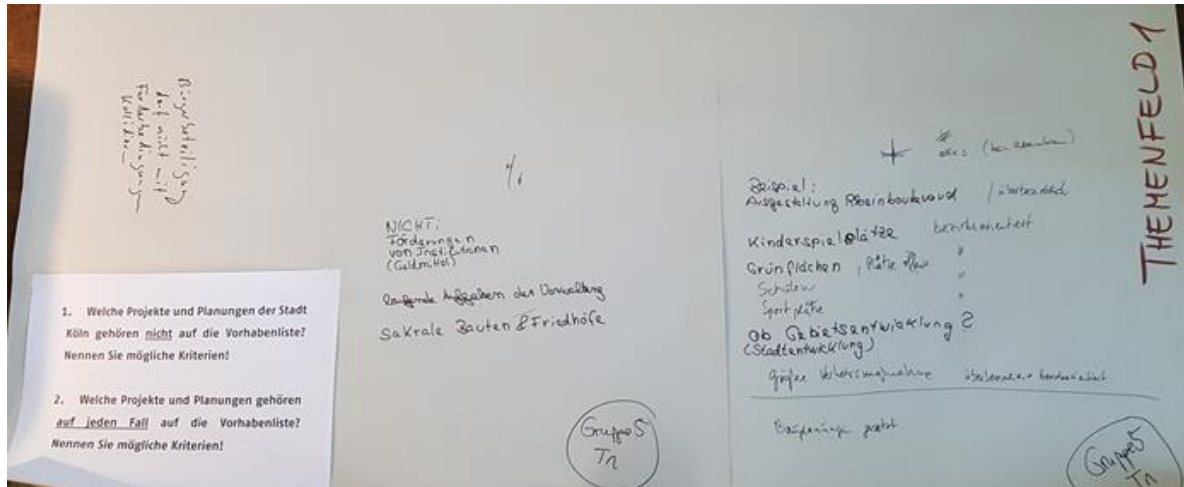 THEMENFELD 1
Bürgerbeteiligung
darf nicht mit
Förderbedingungen
kollidieren
1. Welche Projekte und Planungen der Stadt
Köln gehören nicht auf die Vorhabenliste?
Nennen Sie mögliche Kriterien!
2. Welche Projekte und Planungen gehören
auf jeden Fall auf die Vorhabenliste?
Nennen Sie mögliche Kriterien!
NICHT:
Förderungen
von Institutionen
(Geldmittel)
laufende Aufgaben der Verwaltung
Sakrale Bauten & Friedhöfe
Gruppe 5
Tn
+
Beispiel:
Ausgestaltung Rheinboulevard
Kinderspielplätze
Grünflächen, Plätze
Schulen
Sportplätze
Ob Gebietsentwicklung?
(Stadtentwicklung)
Große Verkehrsmaßnahme
Gruppe 5
Tn